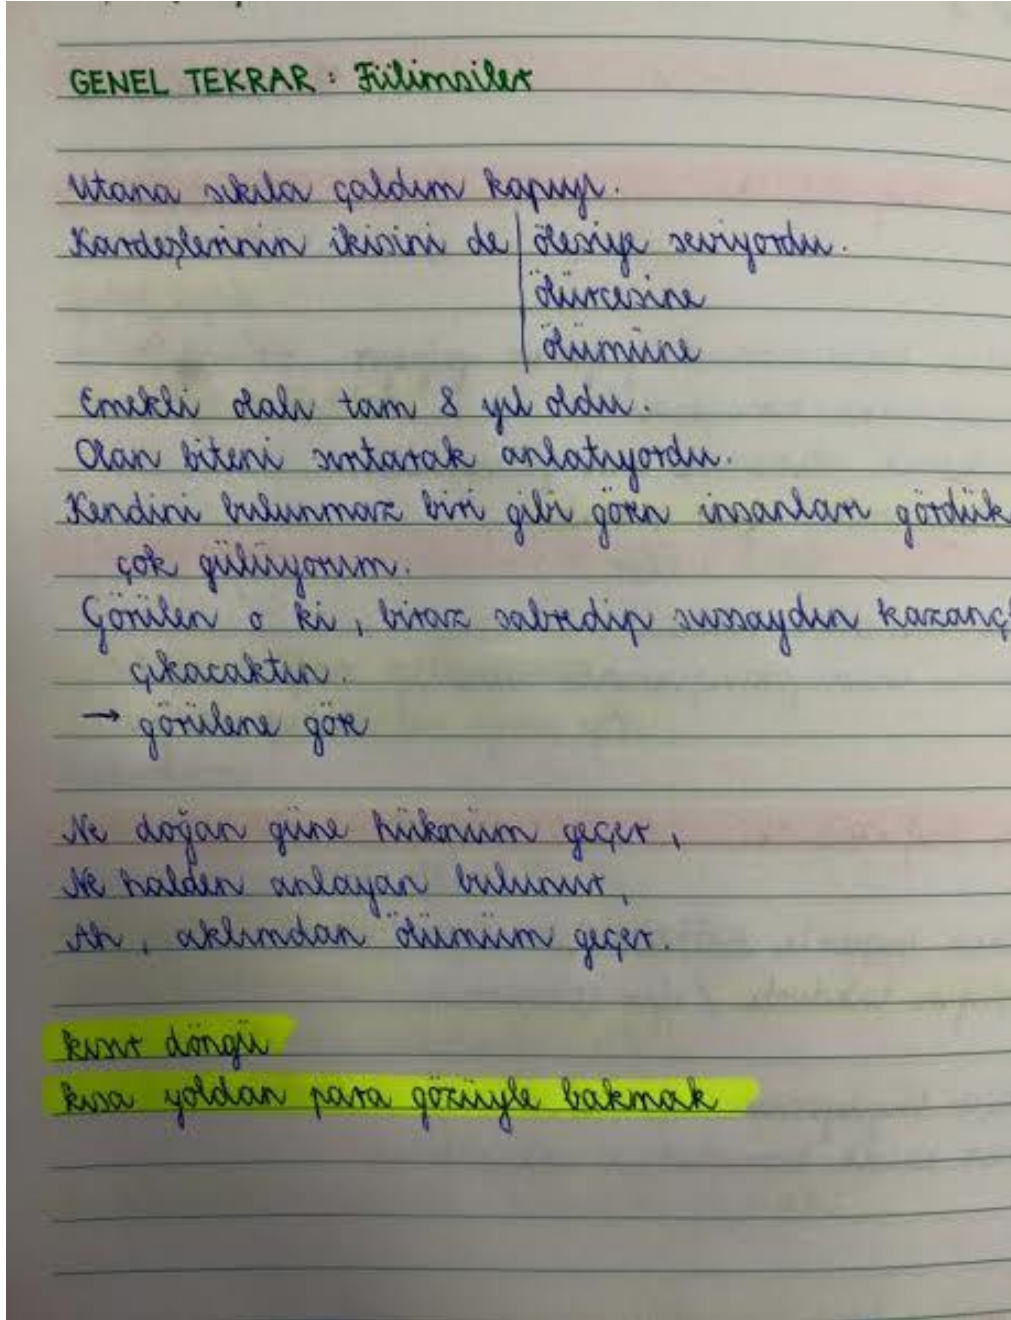 GENEL TEKRAR : Fiilimsiler
Utana sıkıla çaldım kapıyı.
Kardeşlerinin ikisini de ölesiye seviyordu.
ölürcesine
ölümüne
Emekli olalı tam 8 yıl oldu.
Olan biteni sırıtarak anlatıyordu.
Kendini bulunmaz biri gibi gören insanları gördük
çok gülüyorum.
Görülen o ki, biraz sabredip sussaydın kazanç
çıkacaktın.
→ görülene göre
Ne doğan güne hükmüm geçer,
Ne halden anlayan bulunur,
Ah, aklımdan ölümüm geçer.
kısır döngü
kısa yoldan para gözüyle bakmak